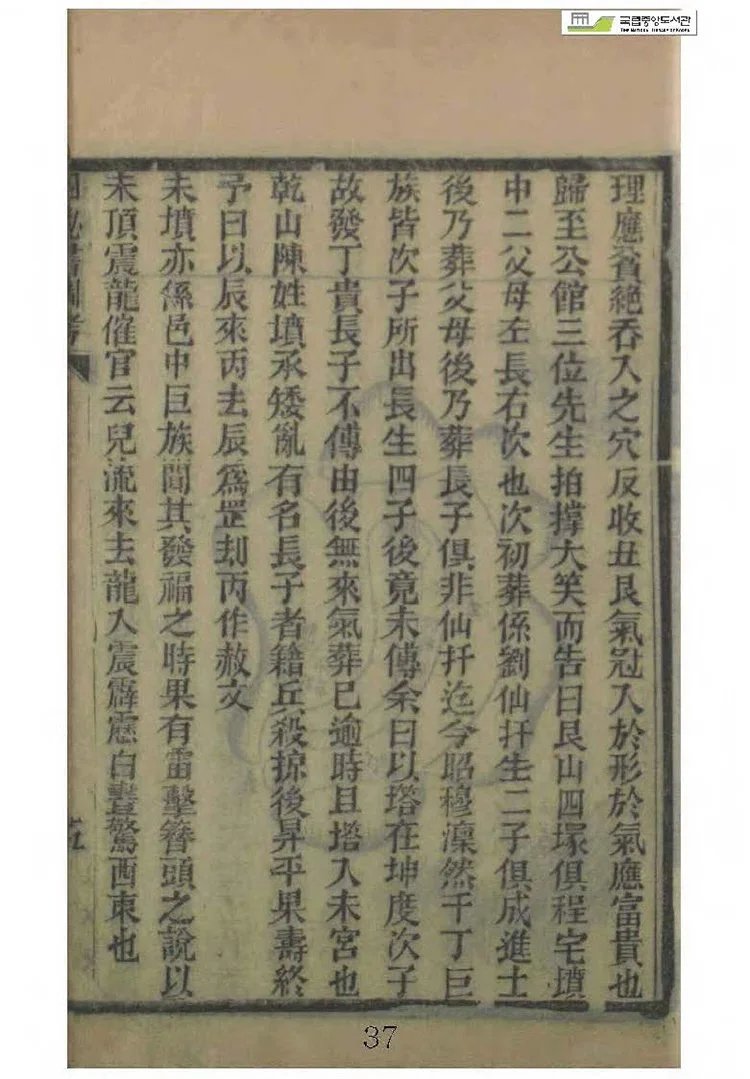 국립중앙도서관
THE NATIONAL LIBRARY OF KOREA
理應貧絕吞入之穴反收丑艮氣冠入於形於氣應富貴也
歸至公館三位先生拍撑大笑而告曰艮山四塚俱程宅墳
中二父母左長右次也次初葬係劉仙扦生二子俱成進士
後乃葬父母後乃葬長子俱非仙扦迄今昭穆凜然千丁巨
族皆次子所出長生四子後竟未傳余曰以塔在坤度次子
故發丁貴長子不傳由後無來氣葬已逾時且塔入未宮也
乾山陳姓墳承矮亂有名長子者籍兵殺掠後昇平果壽終
予曰以辰來丙去辰為罡刧丙作赦文
未墳亦係邑中巨族聞其發福之時果有雷擊簪頭之說以
未頂震龍催官云兒流來去龍入震霹靂白晝驚西東也
五
37